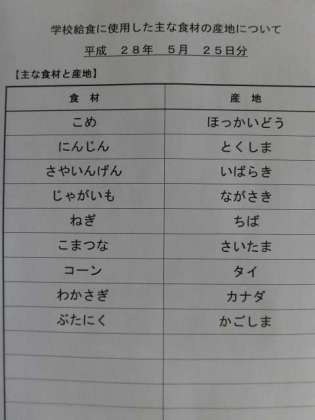 学校給食に使用した主な食材の産地について
平成 28年 5月 25日分
【主な食材と産地】
食 材 産 地
こめ ほっかいどう
にんじん とくしま
さやいんげん いばらき
じゃがいも ながさき
ねぎ ちば
こまつな さいたま
コーン タイ
わかさぎ カナダ
ぶたにく かごしま